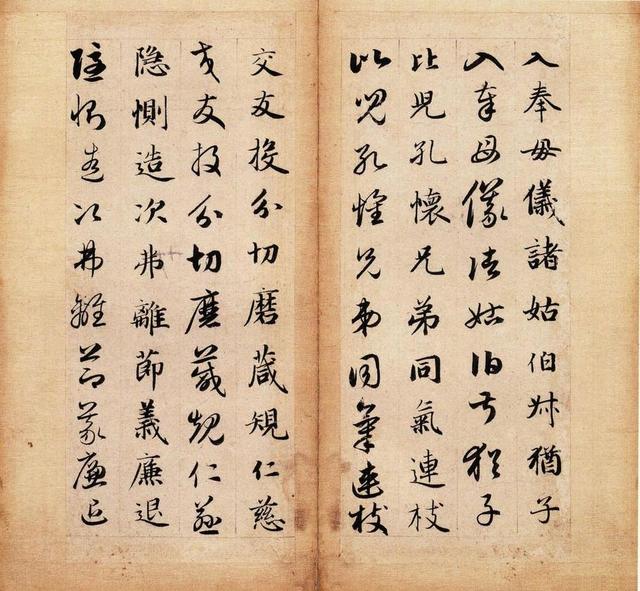 入奉母儀諸姑伯叔猶子
入奉母儀諸姑伯叔猶子
比兒孔懷兄弟同氣連枝
比兒孔懷兄弟同氣連枝
交友投分切磨箴規仁慈
交友投分切磨箴規仁慈
隱惻造次弗離節義廉退
隱惻造次弗離節義廉退